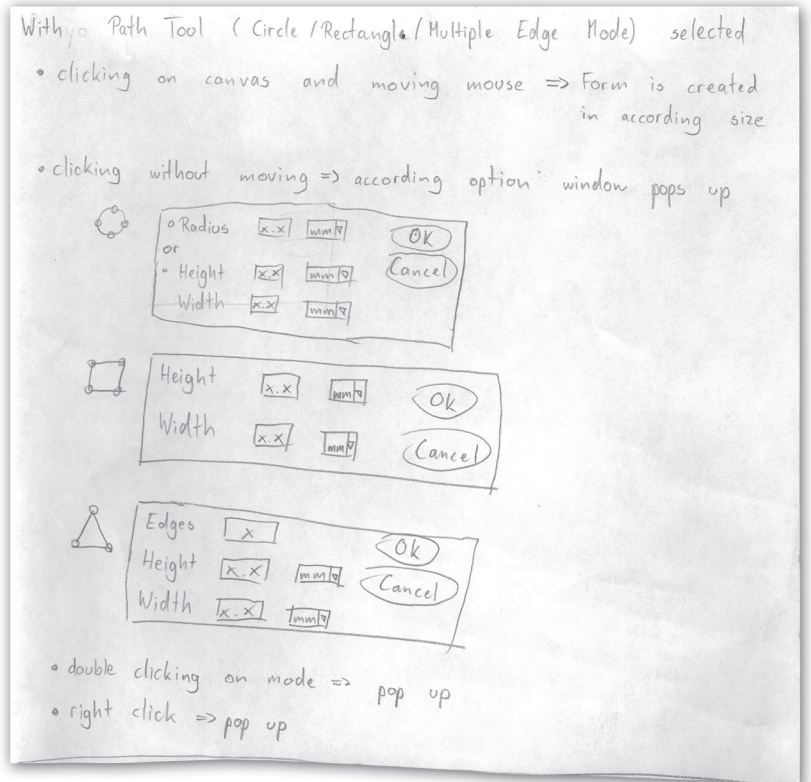 With Path Tool ( Circle / Rectangle / Multiple Edge Mode) selected
• clicking on canvas and moving mouse => Form is created
in according size
• clicking without moving => according option window pops up
o Radius x.x mm OK
or
• Height x.x mm Cancel
Width x.x mm
Height x.x mm Ok
Width x.x mm Cancel
Edges x Ok
Height x.x mm Cancel
Width x.x mm
• double clicking on mode => pop up
• right click => pop up